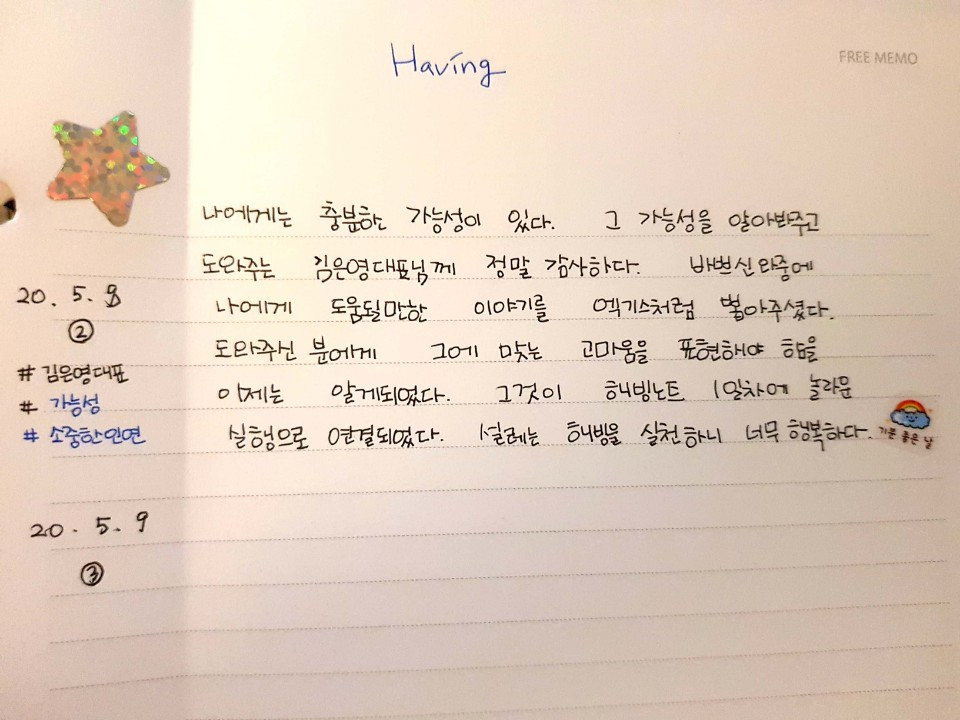 Having
FREE MEMO
나에게는 충분한 가능성이 있다. 그 가능성을 알아봐주고
도와주는 김은영대표님께 정말 감사하다. 바쁘신 와중에
20. 5. 8
나에게 도움될만한 이야기를 엑기스처럼 뽑아주셨다.
②
도와주신 분에게 그에 맞는 고마움을 표현해야 함을
# 김은영대표
이제는 알게되었다. 그것이 해빙노트 1일차에 놀라운
# 가능성
실행으로 연결되었다. 설레는 해빙을 실천하니 너무 행복하다.
기분 좋은 날
# 소중한인연
20. 5. 9
③